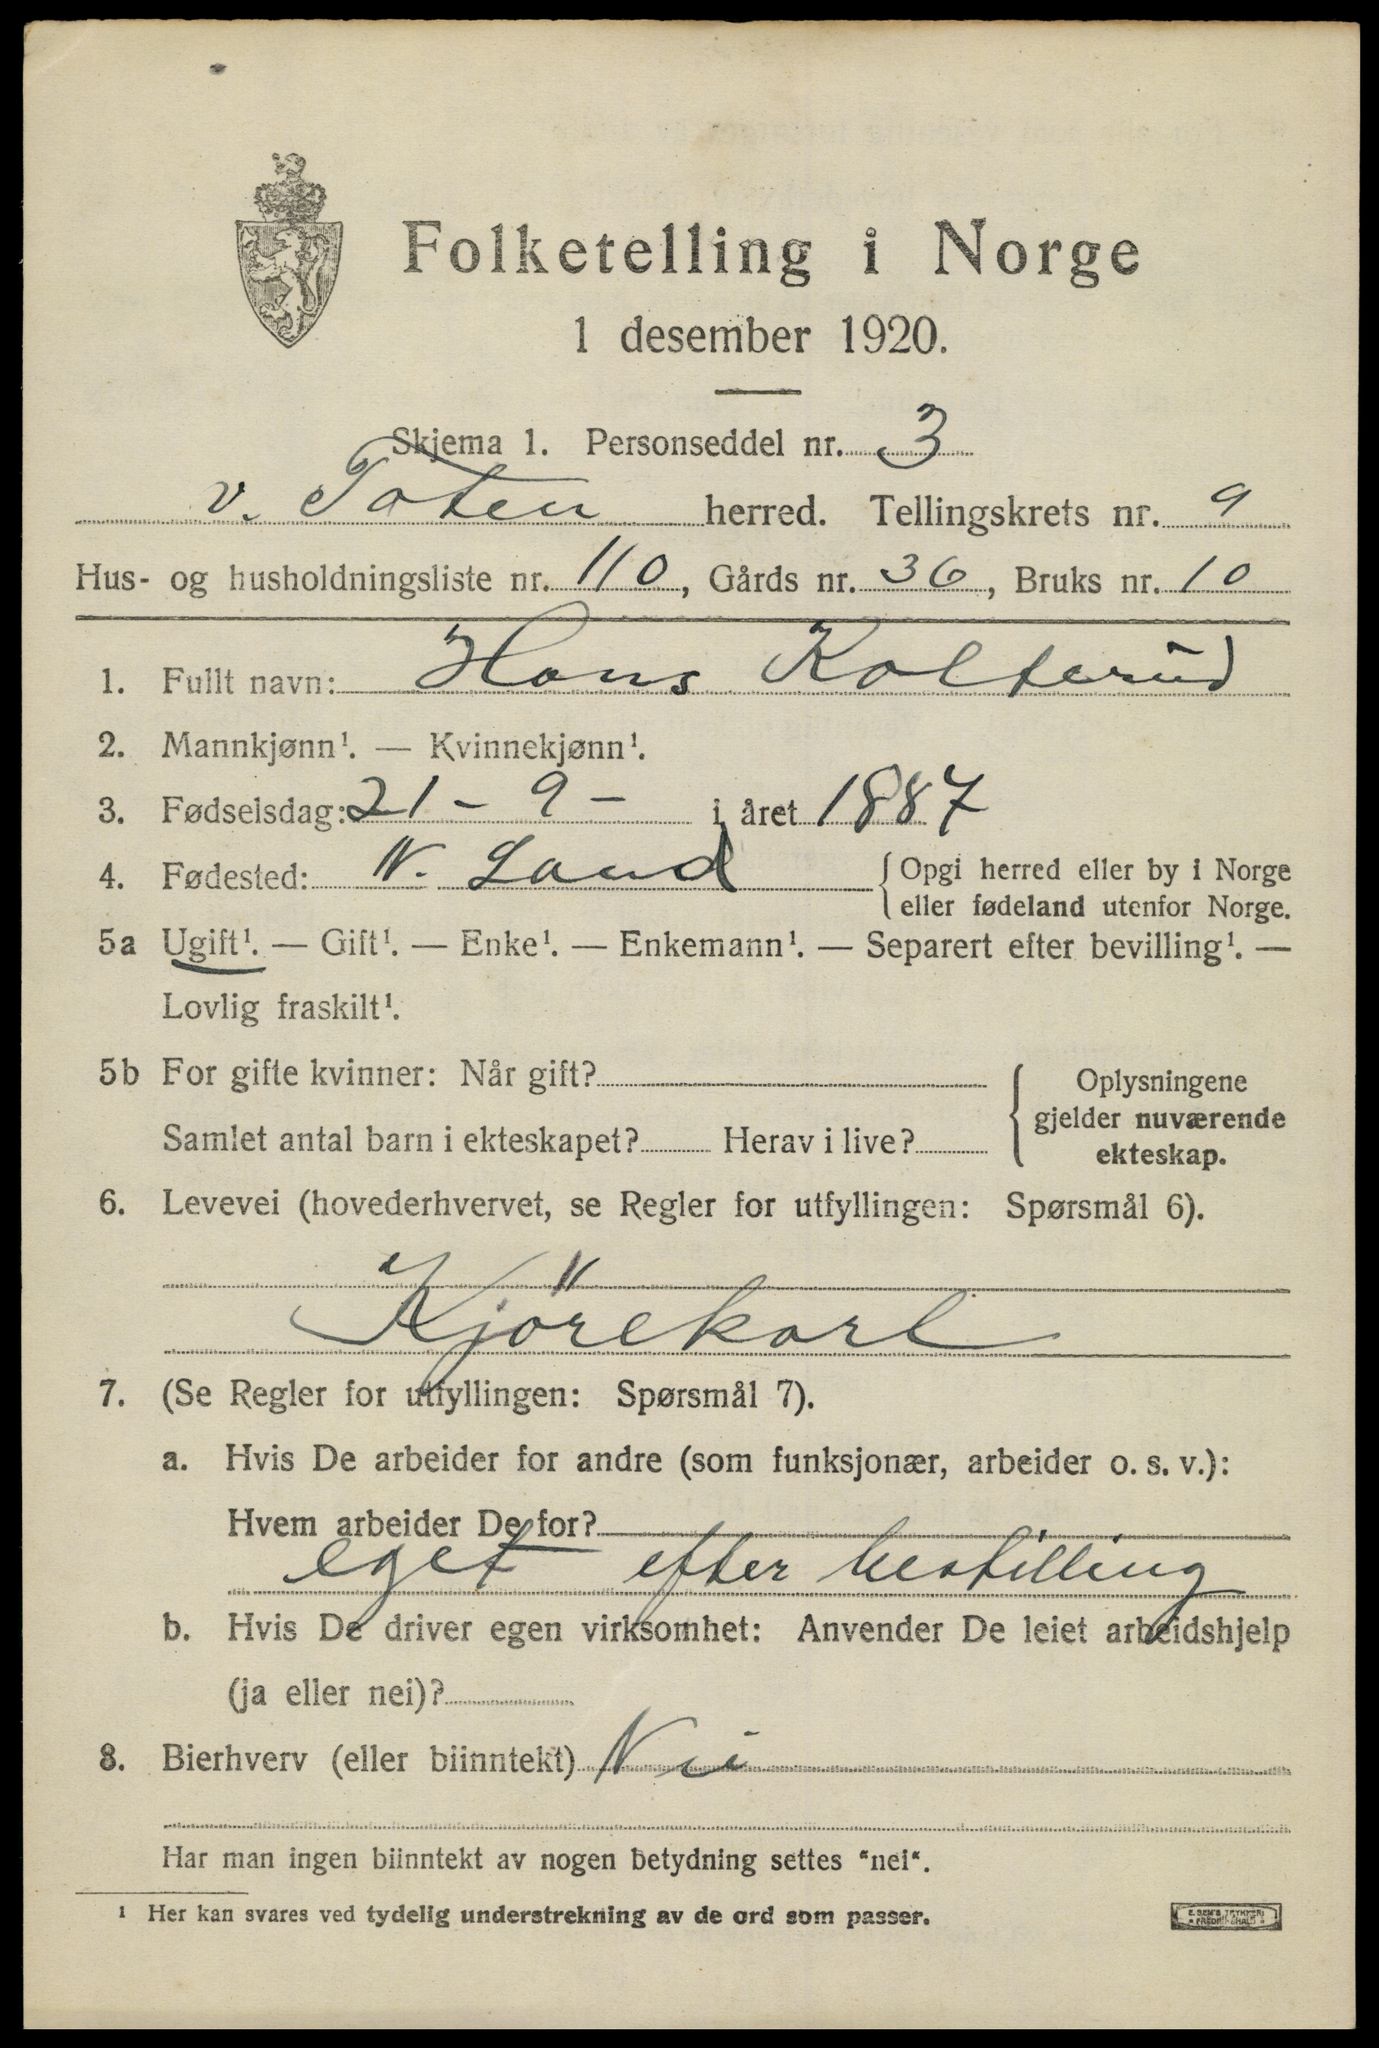 Folketelling i Norge
1 desember 1920.
Skjema 1. Personseddel nr. 3
v. Toten herred. Tellingskrets nr. 9
Hus- og husholdningsliste nr. 110, Gårds nr. 36, Bruks nr. 10
1. Fullt navn: Hans Kolterud
2. Mannkjønn¹. — Kvinnekjønn¹.
3. Fødselsdag: 21 - 9 - i året 1887
4. Fødested: N. Land {Opgi herred eller by i Norge
eller fødeland utenfor Norge.
5a Ugift¹. — Gift¹. — Enke¹. — Enkemann¹. — Separert efter bevilling¹. —
Lovlig fraskilt¹.
5b For gifte kvinner: Når gift?
Samlet antal barn i ekteskapet? Herav i live?
{Oplysningene
gjelder nuværende
ekteskap.
6. Levevei (hovederhvervet, se Regler for utfyllingen: Spørsmål 6).
Kjörekarl
7. (Se Regler for utfyllingen: Spørsmål 7).
a. Hvis De arbeider for andre (som funksjonær, arbeider o. s. v.):
Hvem arbeider De for?
eget efter bestilling
b. Hvis De driver egen virksomhet: Anvender De leiet arbeidshjelp
(ja eller nei)?
8. Bierhverv (eller biinntekt) Nei
Har man ingen biinntekt av nogen betydning settes "nei".
¹ Her kan svares ved tydelig understrekning av de ord som passer.
E. SEM'S TRYKKERI
FREDRIKSHALD